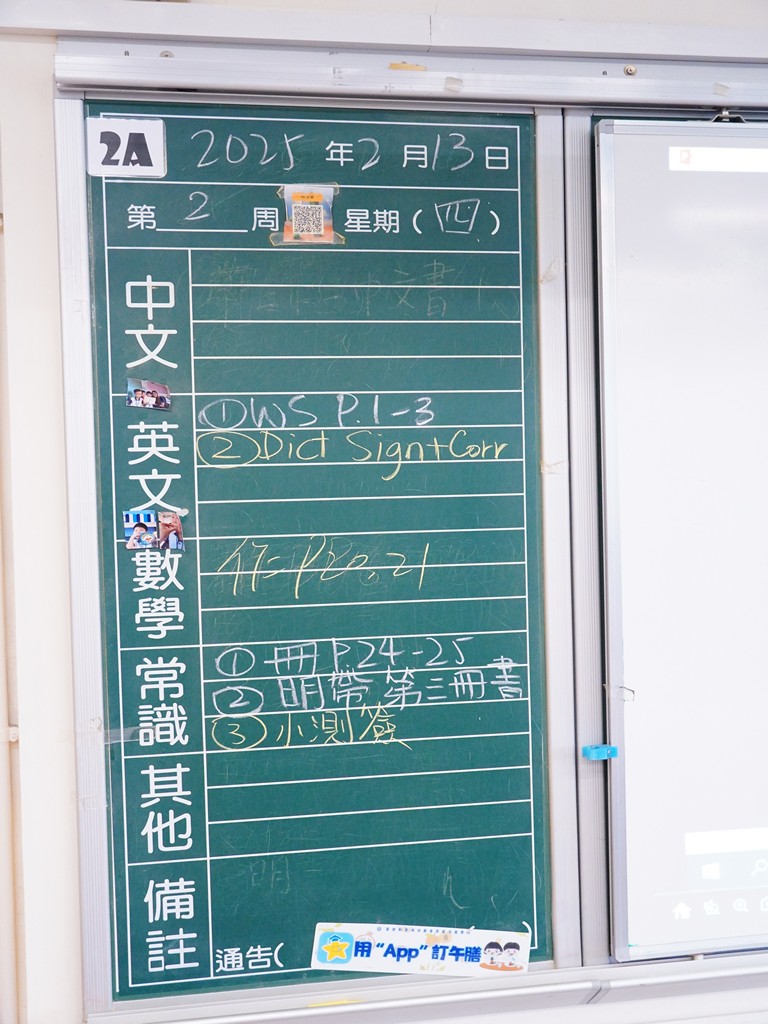 2A
2025年2月13日
第2周 星期(四)
中文
英文
①WS P.1-3
②Dict Sign+Corr
數學
作二P20,21
常識
①冊P24-25
②明帶第三冊書
③小測簽
其他
備註
明
通告(
用“App”訂午膳